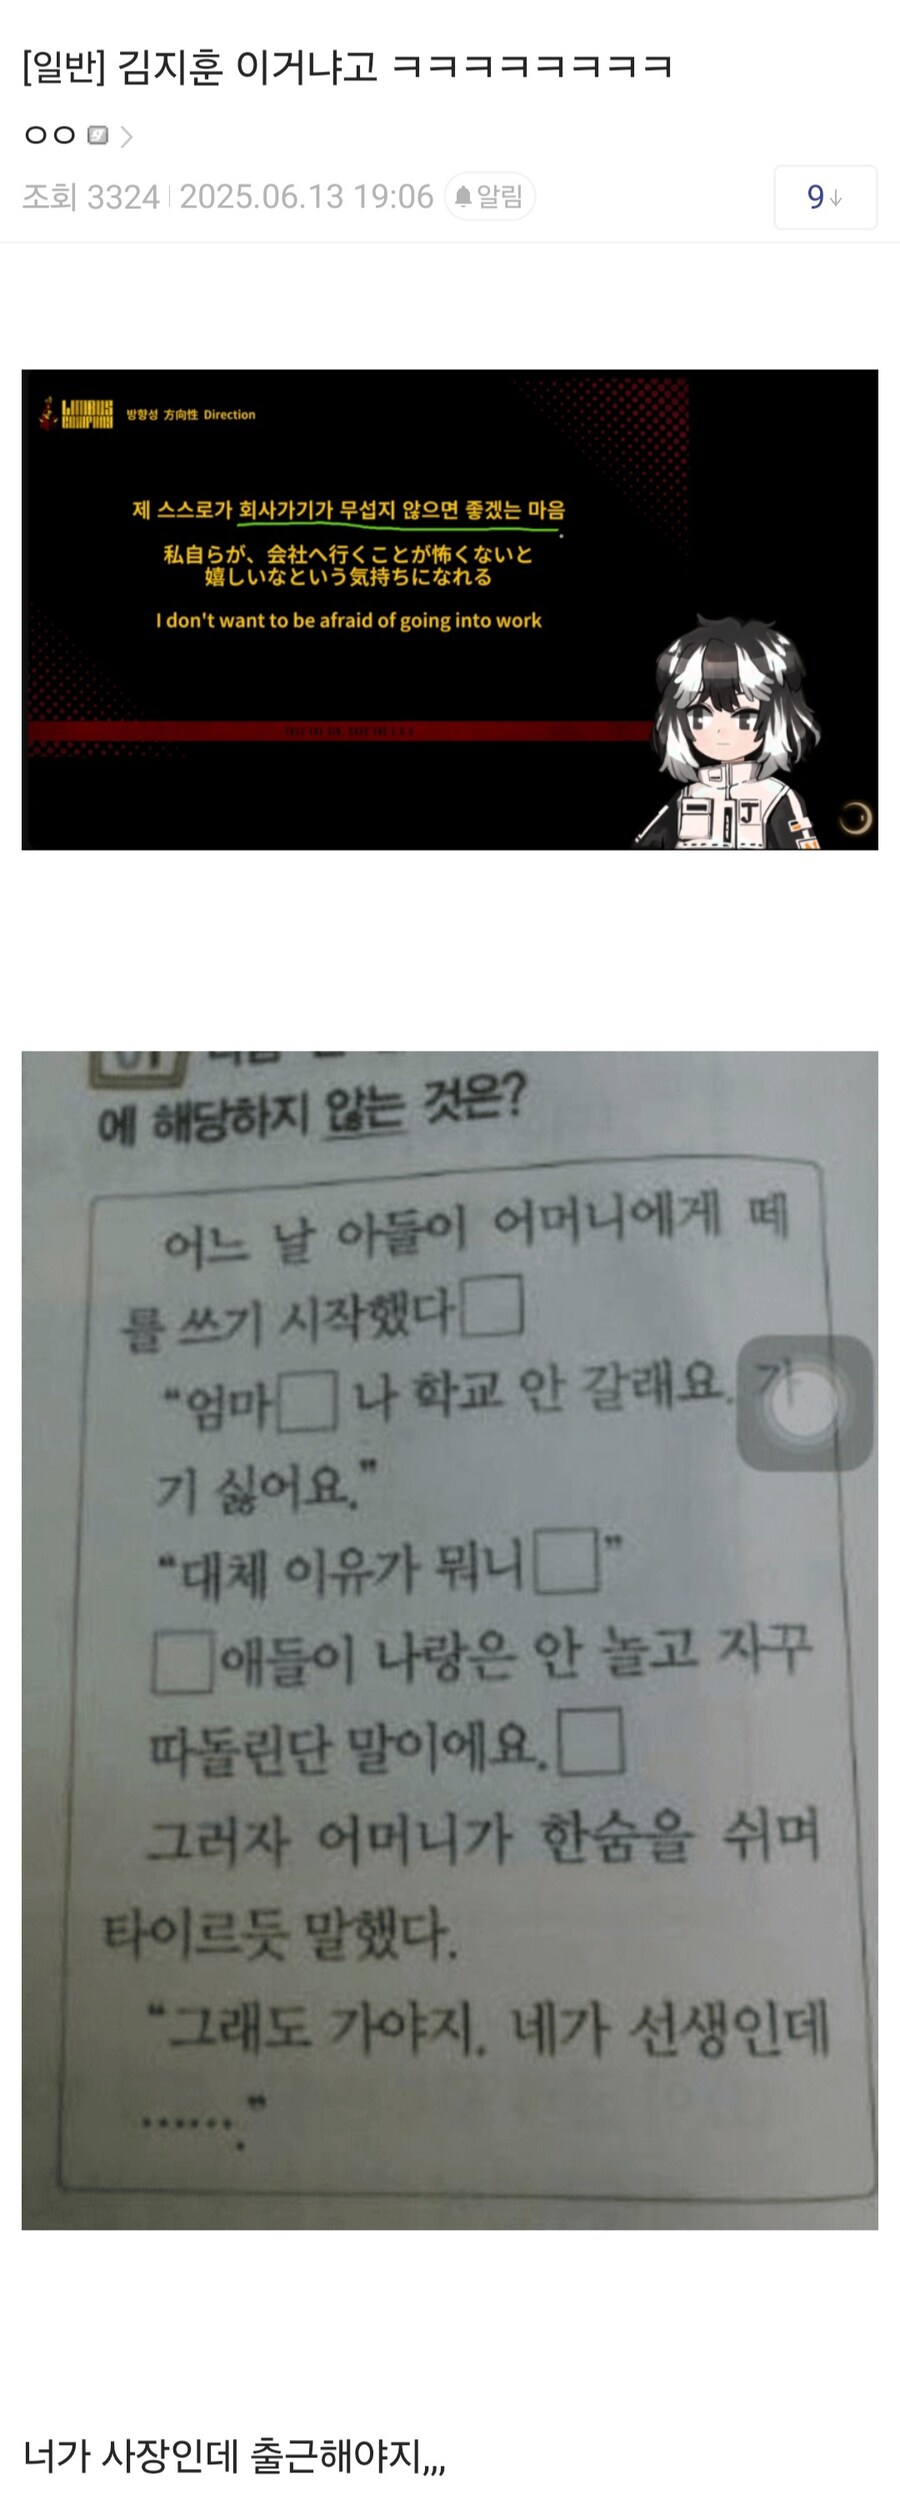 [일반] 김지훈 이거냐고 ㅋㅋㅋㅋㅋㅋㅋㅋ
ㅇㅇ
조회 3324 2025.06.13 19:06 알림
9↓
LIMBUS COMPANY 방향성 方向性 Direction
제 스스로가 회사가기가 무섭지 않으면 좋겠는 마음
私自らが、会社へ行くことが怖くないと
嬉しいなという気持ちになれる
I don't want to be afraid of going into work
J
에 해당하지 않는 것은?
어느 날 아들이 어머니에게 떼
를 쓰기 시작했다□
“엄마□ 나 학교 안 갈래요. 가
기 싫어요.”
“대체 이유가 뭐니□”
□애들이 나랑은 안 놀고 자꾸
따돌린단 말이에요.□
그러자 어머니가 한숨을 쉬며
타이르듯 말했다.
“그래도 가야지. 네가 선생인데
…….”
너가 사장인데 출근해야지,,,